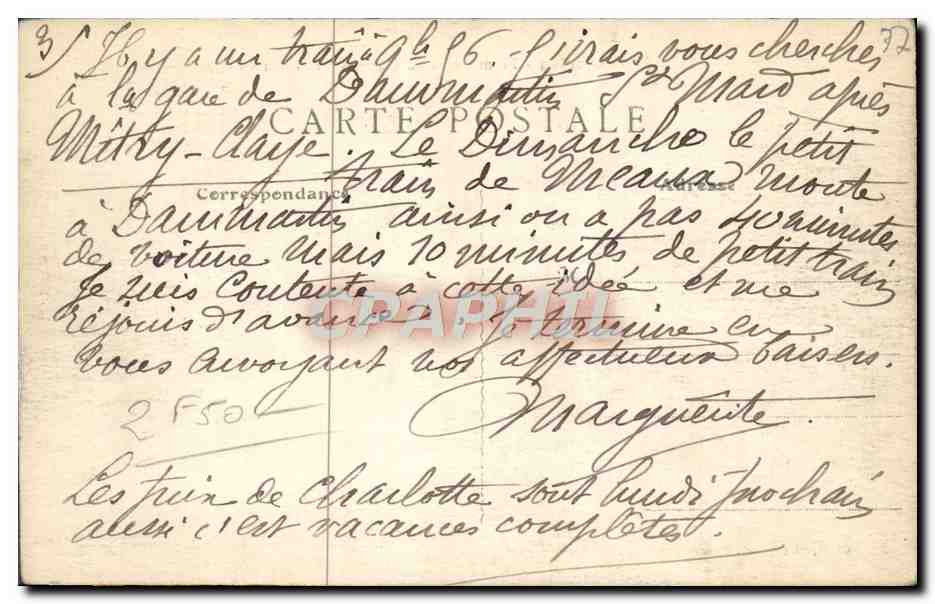 3) Il y a un train à 9h 56. J'irais vous chercher 37
à la gare de Dammartin St Mard après
CARTE POSTALE
Mitry-Claye. Le Dimanche le petit
train de Meaux monte
Correspondance Adresse
à Dammartin ainsi on a pas 40 minutes
de voiture mais 10 minutes de petit train
Je suis contente à cette idée et me
réjouis d'avance. Je termine en
CPAPHIL
vous envoyant nos affectueux baisers.
2F50
Marguerite.
Les prix de Charlotte sont lundi prochain
aussi c'est vacances complètes.